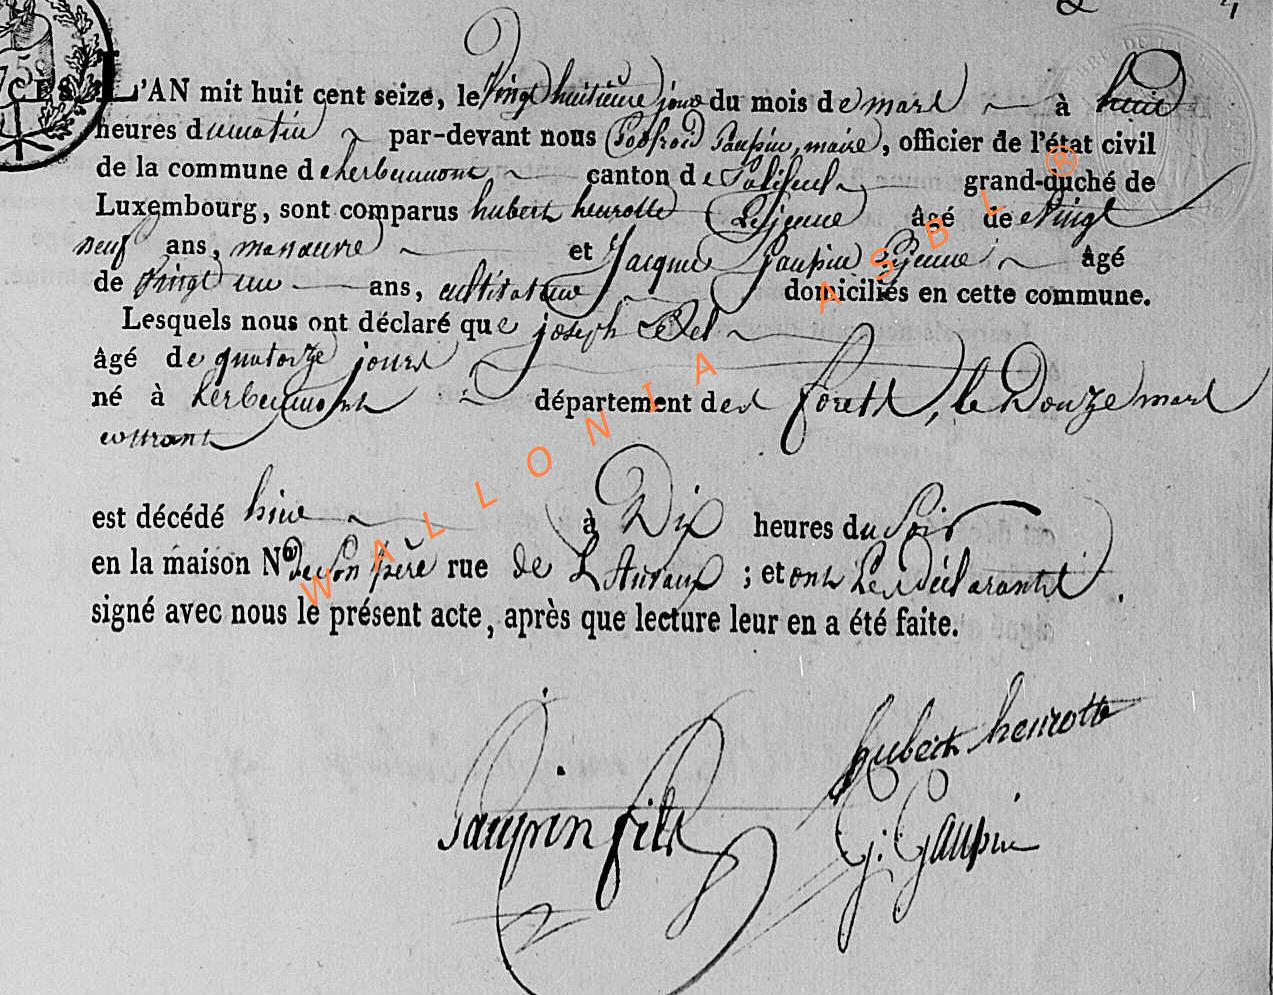 75 c
CES
L'AN mil huit cent seize, le vingt huitieme jour du mois de mars à huit
heures du matin par-devant nous Godfroid Gaupin, maire, officier de l'état civil
de la commune d'herbeumont canton de Paliseul grand-duché de
Luxembourg, sont comparus hubert heurotte Le jeune âgé de Vingt
neuf ans, manœuvre et Jacque Gaupin Le jeune âgé
de Vingt un ans, cultivateur domiciliés en cette commune.
Lesquels nous ont déclaré que joseph
âgé de quatorze jours
né à herbeumont département des forets, le Douze mars
courant
est décédé hier à Dix heures du Soir
en la maison No de Son père rue de ; et ont Les Déclarants
signé avec nous le présent acte, après que lecture leur en a été faite.
hubert heurotte
Gaupin fils
J. Gaupin
WALLONIA ASBL ®